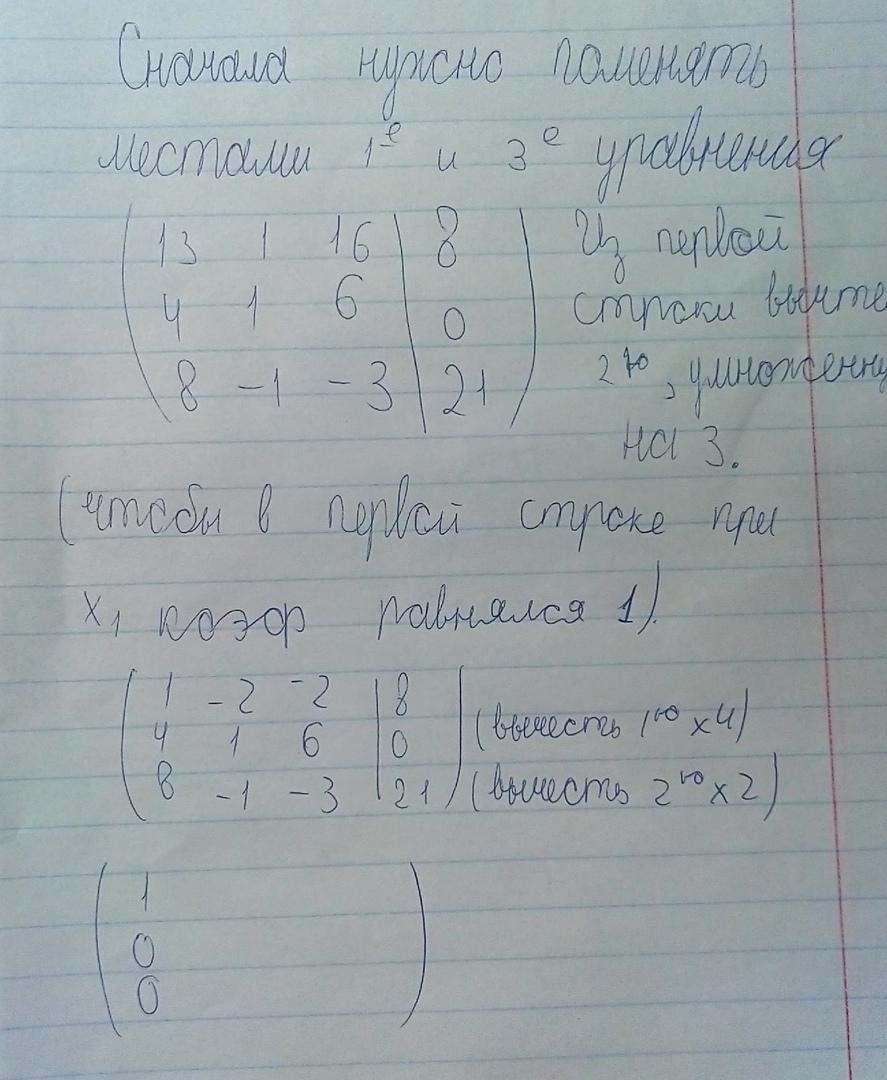 Сначала нужно поменять
местами 1е и 3е уравнения
13 1 16 | 8 Из первой
4 1 6 | 0 строки вычте
8 -1 -3 | 21 2ю, умноженну
на 3.
(чтобы в первой строке при
x1 коэф равнялся 1).
1 -2 -2 | 8
4 1 6 | 0 (вычесть 1ую x4)
8 -1 -3 | 21 (вычесть 2ую x2)
1
0
0